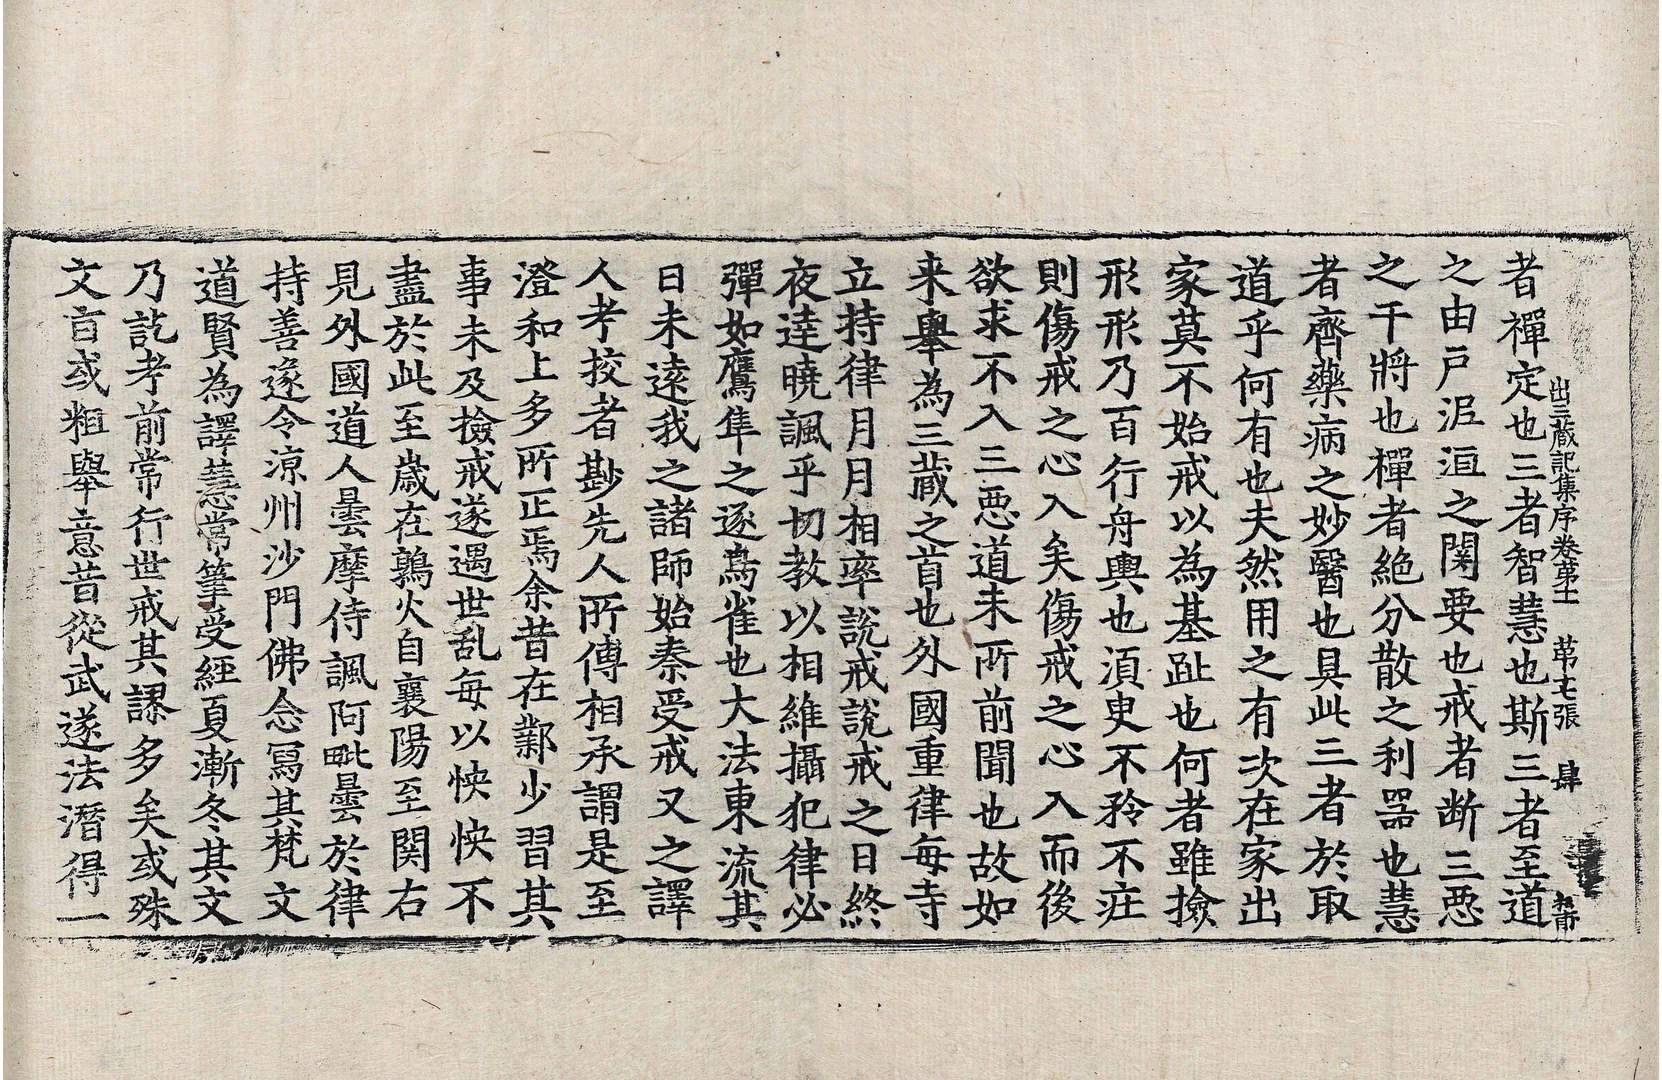 出三蔵記集序卷苐十一 苐七張 肆
者禪定也三者智慧也斯三者至道
之由戸泥洹之関要也戒者断三惡
之干將也禪者絶分散之利器也慧
者齊藥病之妙醫也具此三者於取
道乎何有也夫然用之有次在家出
家莫不始戒以為基趾也何者雖撿
形形乃百行舟輿也湏臾不矜不莊
則傷戒之心入矣傷戒之心入而後
欲求不入三惡道未所前聞也故如
来舉為三蔵之首也外國重律每寺
立持律月月相率說戒說戒之日終
夜逹曉諷乎切教以相維攝犯律必
彈如鷹隼之逐鳥雀也大法東流其
日未逺我之諸師始秦受戒又之譯
人考挍者尠先人所傳相承謂是至
澄和上多所正焉余昔在鄴少習其
事未及撿戒遂遇世乱每以怏怏不
盡於此至歳在鶉火自襄陽至関右
見外國道人曇摩侍諷阿毗曇於律
持善遂令涼州沙門佛念寫其梵文
道賢為譯慧常筆受經夏漸冬其文
乃訖考前常行世戒其謬多矣或殊
文㫖或粗舉意昔從武遂法潛得一